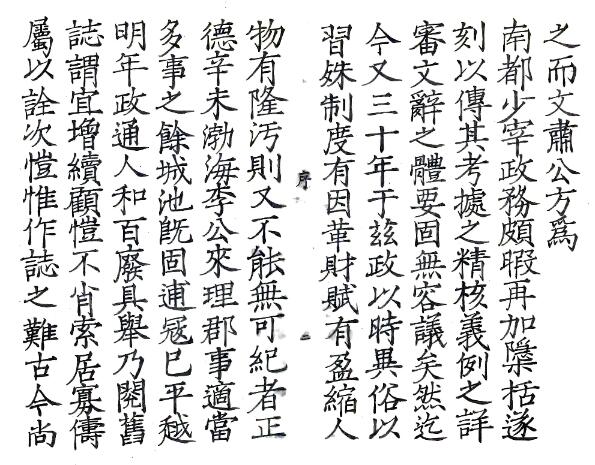 之而文肅公方爲
南都少宰政務頗暇再加檃括遂
刻以傳其考據之精核義例之詳
審文辭之體要固無容議矣然迄
今又三十年于兹政以時異俗以
習殊制度有因革財賦有盈縮人
序
二
物有隆污則又不能無可紀者正
德辛未渤海李公來理郡事適當
多事之餘城池旣固逋冦巳平越
明年政通人和百廢具舉乃閱舊
誌謂宜增續顧愷不肖索居寡儔
屬以詮次愷惟作誌之難古今尚